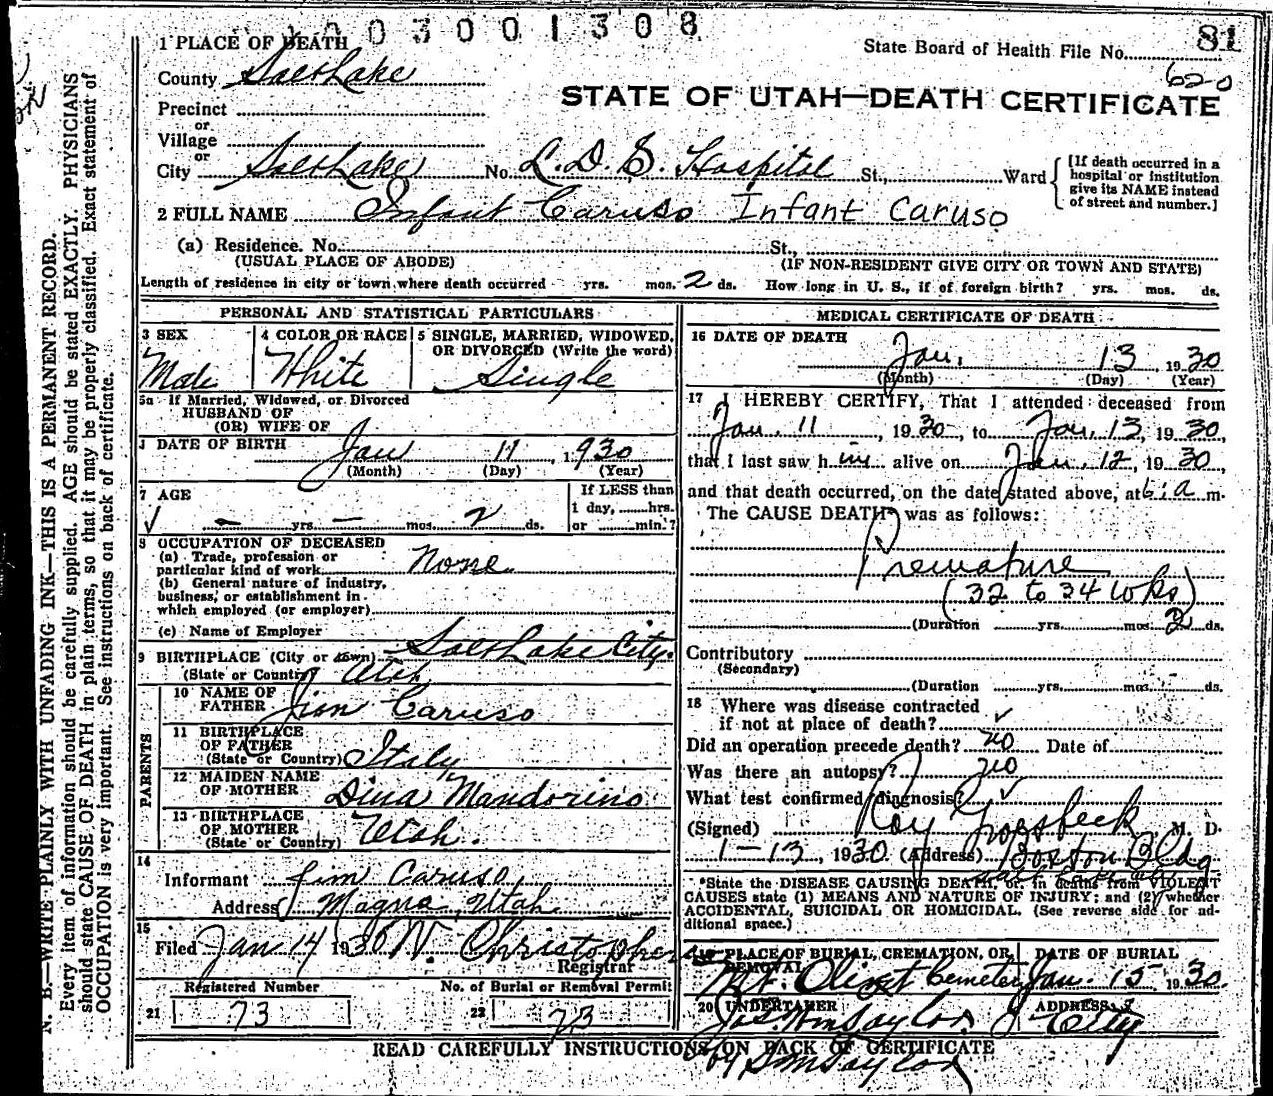 003001308
81
State Board of Health File No.
620
STATE OF UTAH—DEATH CERTIFICATE
1 PLACE OF DEATH
County Salt Lake
Precinct
or
Village
or
City Salt Lake No. L. D. S. Hospital St., Ward
[If death occurred in a
hospital or institution
give its NAME instead
of street and number.]
2 FULL NAME Infant Caruso Infant Caruso
(a) Residence. No. St.,
(USUAL PLACE OF ABODE) (IF NON-RESIDENT GIVE CITY OR TOWN AND STATE)
Length of residence in city or town where death occurred yrs. mos. 2 ds. How long in U. S., if of foreign birth? yrs. mos. ds.
PERSONAL AND STATISTICAL PARTICULARS
3 SEX
Male
4 COLOR OR RACE
White
5 SINGLE, MARRIED, WIDOWED,
OR DIVORCED (Write the word)
Single
5a If Married, Widowed, or Divorced
HUSBAND OF
(OR) WIFE OF
DATE OF BIRTH Jan 11, 1930
(Month) (Day) (Year)
7 AGE
— yrs. — mos. 2 ds.
If LESS than
1 day, hrs.
or min.?
8 OCCUPATION OF DECEASED
(a) Trade, profession or
particular kind of work None
(b) General nature of industry,
business, or establishment in
which employed (or employer)
(c) Name of Employer
9 BIRTHPLACE (City or town) Salt Lake City.
(State or Country) Utah
PARENTS
10 NAME OF
FATHER Jim Caruso
11 BIRTHPLACE
OF FATHER
(State or Country) Italy
12 MAIDEN NAME
OF MOTHER Dina Mandorino
13 BIRTHPLACE
OF MOTHER
(State or Country) Utah.
14
Informant Jim Caruso
Address Magna, Utah
15
Filed Jan 14 1930 W. Christopher
Registrar
Registered Number No. of Burial or Removal Permit
21 73 22 73
MEDICAL CERTIFICATE OF DEATH
16 DATE OF DEATH
Jan. 13 1930
(Month) (Day) (Year)
17 I HEREBY CERTIFY, That I attended deceased from
Jan. 11, 1930, to Jan. 13, 1930,
that I last saw h im alive on Jan. 12, 1930,
and that death occurred, on the date stated above, at 6:a m.
The CAUSE DEATH was as follows:
Premature
(32 to 34 wks)
(Duration yrs. mos. 2 ds.
Contributory
(Secondary)
(Duration yrs. mos. ds.
18 Where was disease contracted
if not at place of death? ✓
Did an operation precede death? no Date of
Was there an autopsy? no
What test confirmed diagnosis? ✓
(Signed) Roy Groesbeck, M. D.
1-13, 1930 (Address) Boston Bldg
Salt Lake City
*State the DISEASE CAUSING DEATH, or, in deaths from VIOLENT
CAUSES state (1) MEANS AND NATURE OF INJURY; and (2) whether
ACCIDENTAL, SUICIDAL OR HOMICIDAL. (See reverse side for ad-
ditional space.)
19 PLACE OF BURIAL, CREMATION, OR
REMOVAL
Mt. Olivet Cemetery
DATE OF BURIAL
Jan. 15 1930.
20 UNDERTAKER
Jos. Wm Taylor.
ADDRESS
City
READ CAREFULLY INSTRUCTIONS ON BACK OF CERTIFICATE
by S M Taylor
N. B.—WRITE PLAINLY WITH UNFADING INK—THIS IS A PERMANENT RECORD.
Every item of information should be carefully supplied. AGE should be stated EXACTLY. PHYSICIANS
should state CAUSE OF DEATH in plain terms, so that it may be properly classified. Exact statement of
OCCUPATION is very important. See instructions on back of certificate.